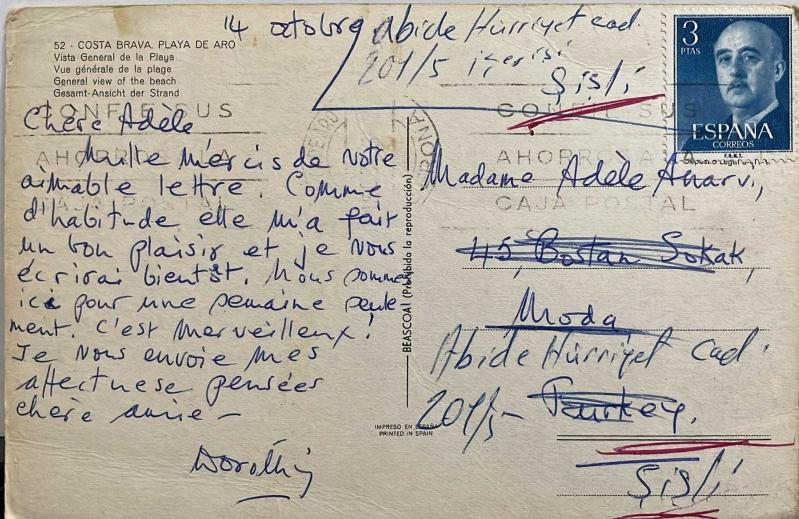 14 octobre
52 - COSTA BRAVA. PLAYA DE ARO
Vista General de la Playa
Vue générale de la plage
General view of the beach
Gesamt-Ansicht der Strand
CONFIE SUS
AHORROS A LA
CAJA POSTAL
Chère Adèle
Mille mercis de votre
aimable lettre. Comme
d'habitude elle m'a fait
un bon plaisir et je vous
écrirai bientôt. Nous sommes
ici pour une semaine seule-
ment. C'est merveilleux!
Je vous envoie mes
affectueuse pensées
chère amie -
Dorothy
BEASCOA! (Prohibida la reproducción)
IMPRESO EN ESPAÑA
PRINTED IN SPAIN
Abide Hürriyet cad.
201/5 içerisi
Şişli
3
PTAS
ESPAÑA
CORREOS
F.N.M.T.
CONFIE SUS
AHORROS A
CAJA POSTAL
Madame Adèle
45, Bostan Sokak,
Moda
Abide Hürriyet Cad.
201/5-
Turkey.
Şişli